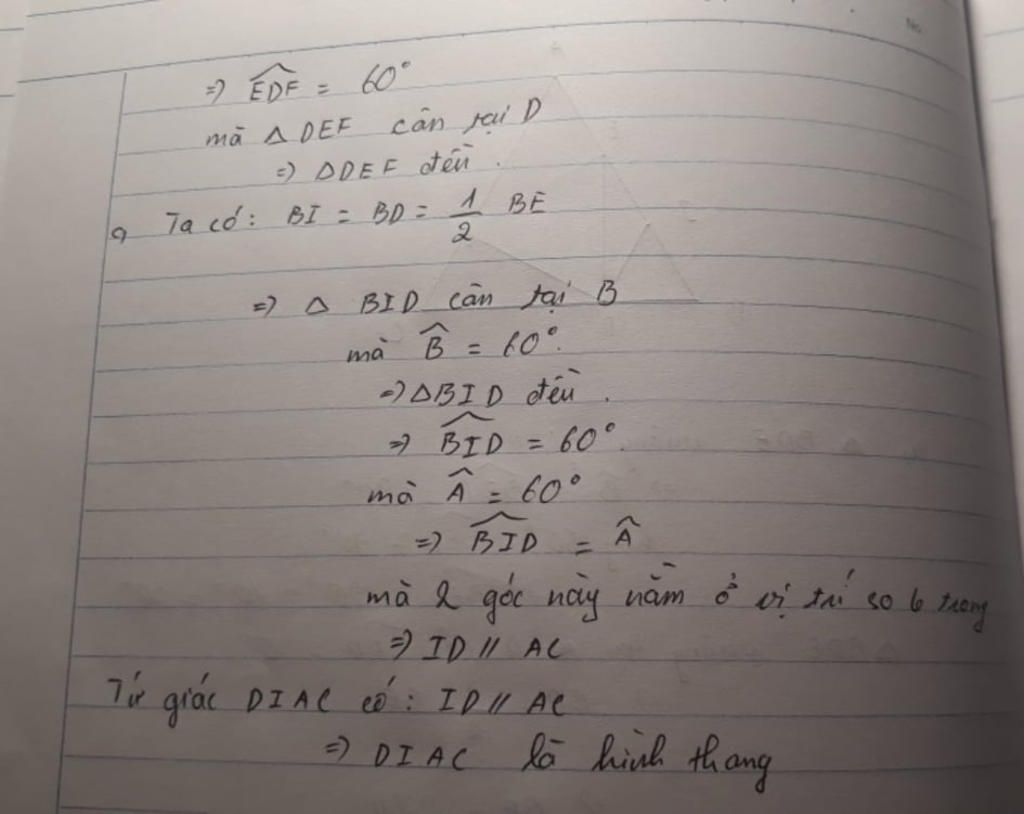 ⇒ $\widehat{EDF}$ = 60°
mà △ DEF cân tại D
⇒ △DEF đều.
Ta có: BI = BD = $\frac{1}{2}$ BE
⇒ △ BID cân tại B
mà $\widehat{B}$ = 60°.
⇒ △BID đều.
⇒ $\widehat{BID}$ = 60°.
mà $\widehat{A}$ = 60°
⇒ $\widehat{BID}$ = $\widehat{A}$
mà 2 góc này nằm ở vị trí so le trong
⇒ ID // AC
Tứ giác DIAC có: ID // AC
⇒ DIAC là hình thang